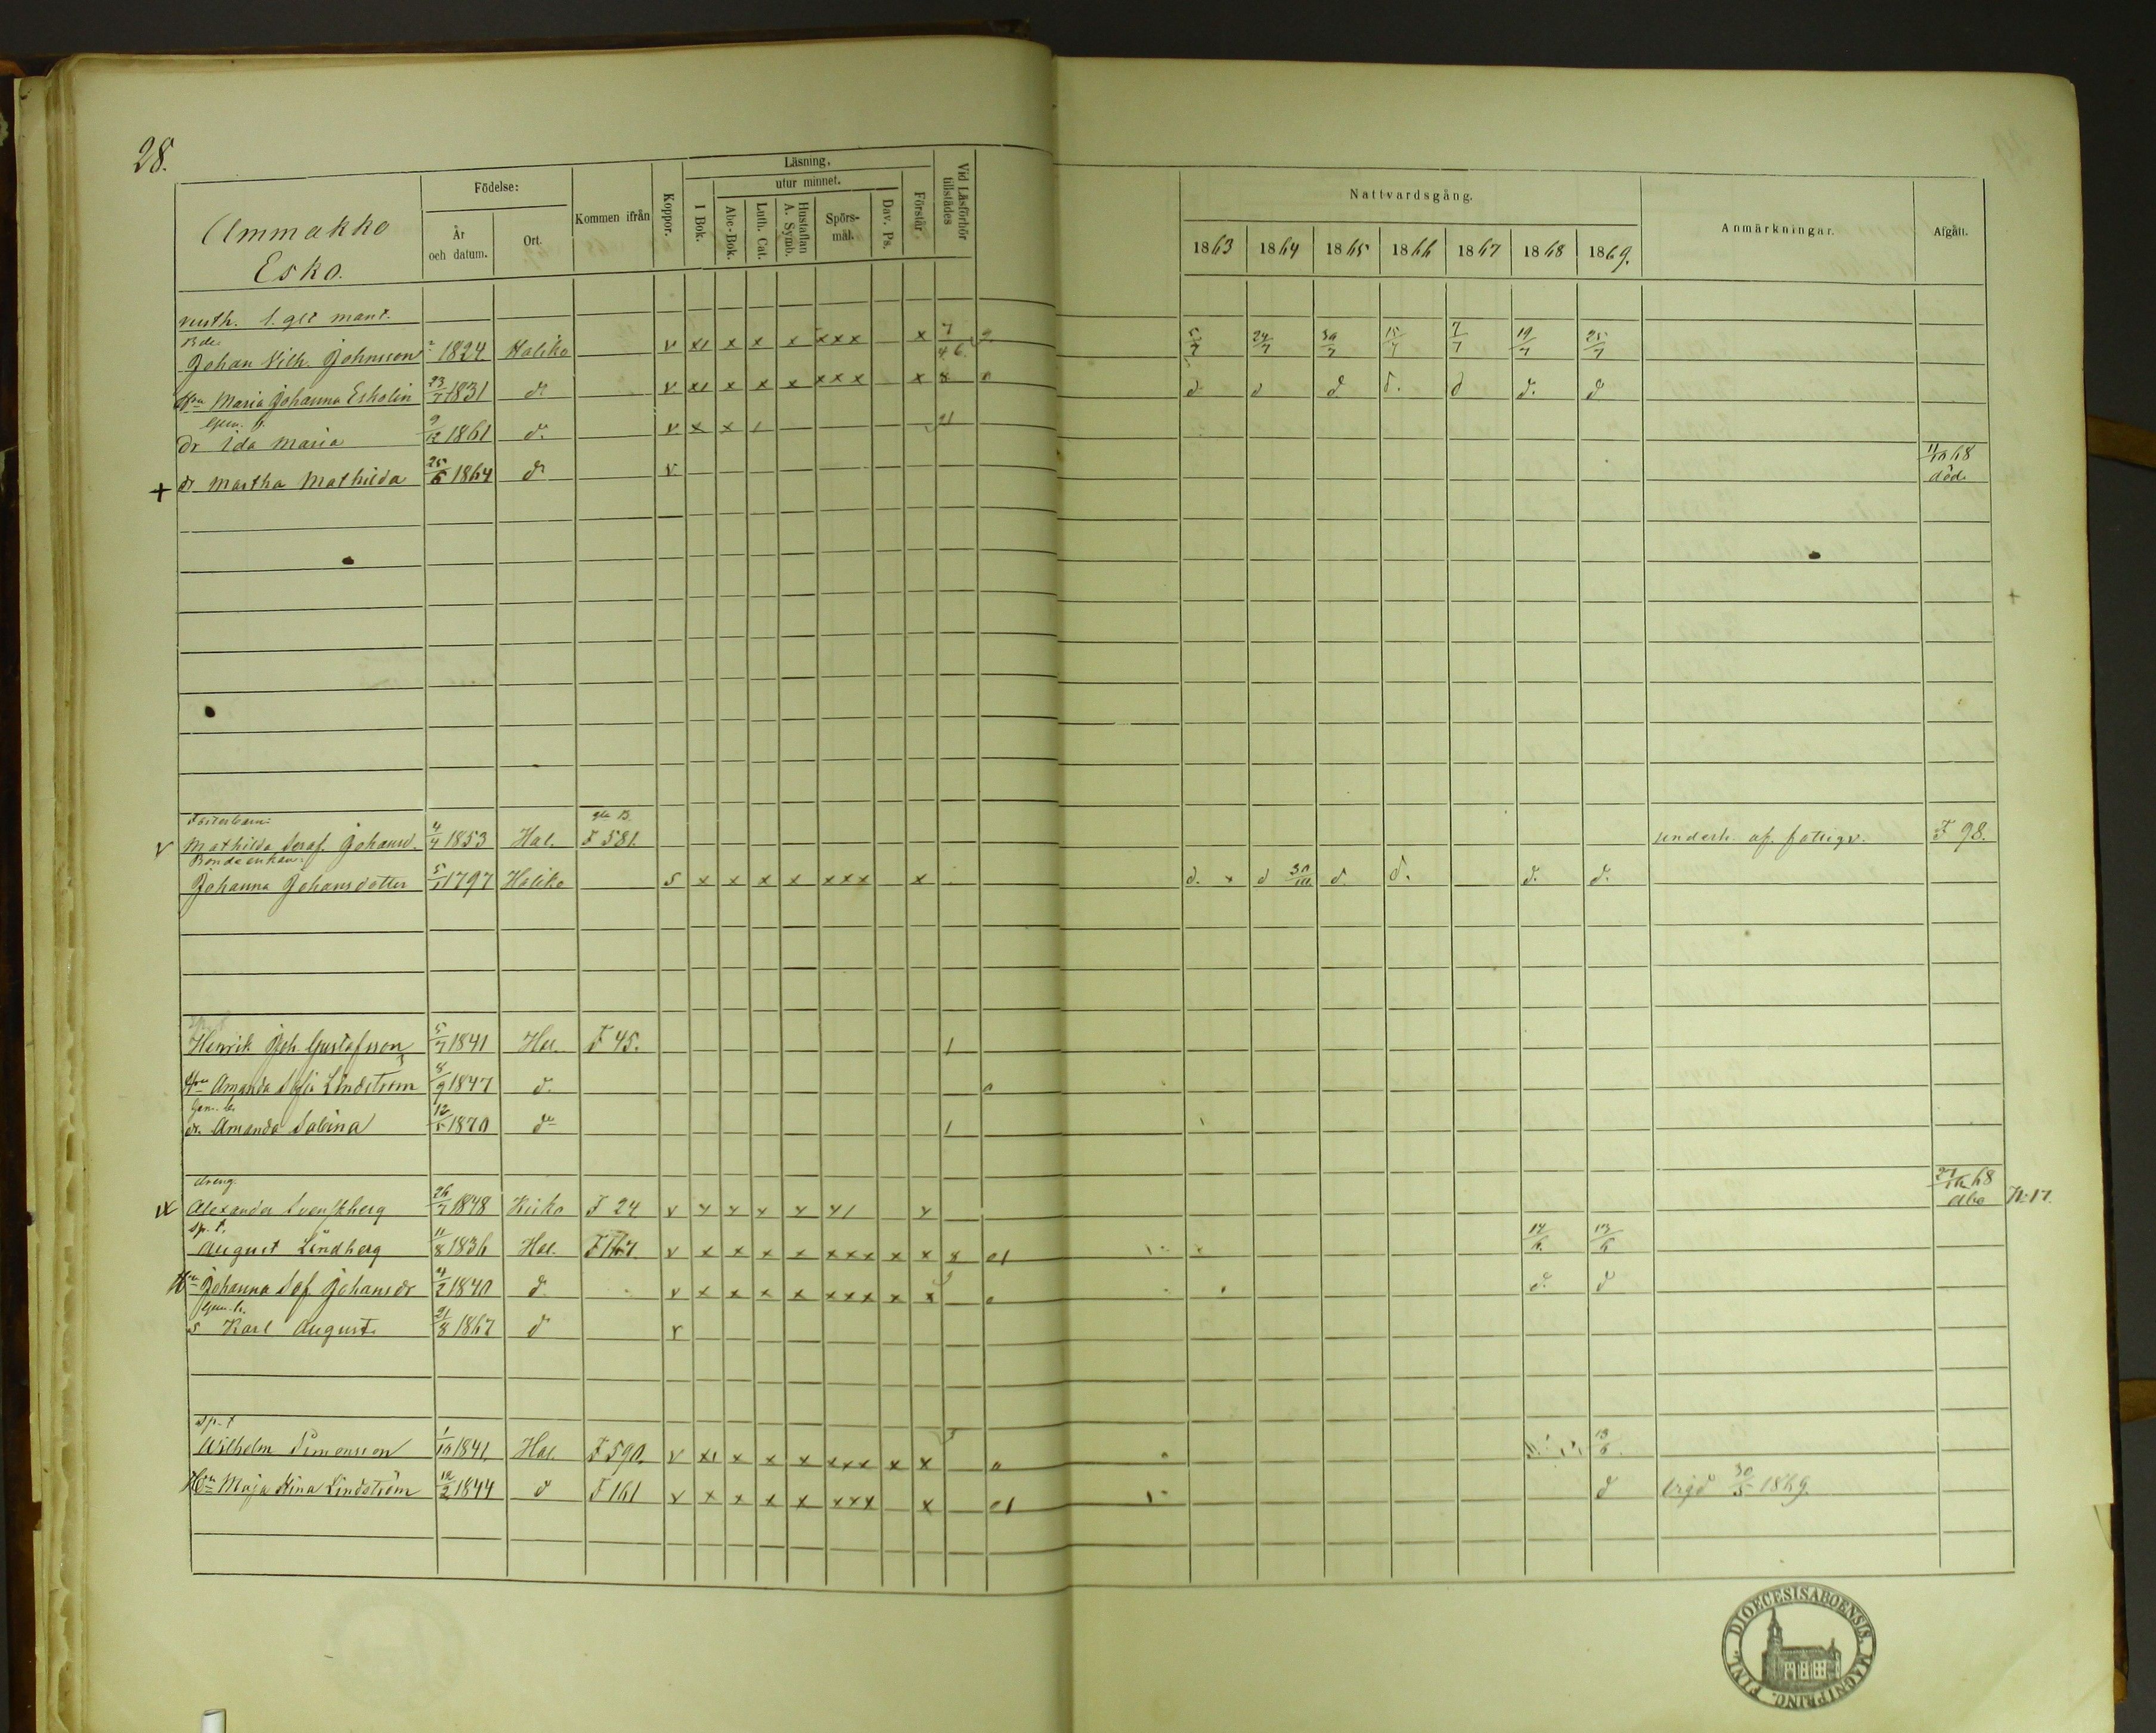 28.
Ammakko
Esko.
Födelse:
År och datum.
Ort.
Kommen ifrån
Koppor.
Läsning,
utur minnet.
I Bok.
Abc-Bok.
Luth. Cat.
Hustaflan A. Symb.
Spörs-mål.
Dav. Ps.
Förstår
Vid Läsförhör tillstädes
Nattvardsgång.
1863 1864 1865 1866 1867 1868 1869.
Anmärkningar.
Afgått.
rusth. mant.
Johan Vilh. Johnsson 1824 Haliko v x x x x x x x 5/7 24/7 30/7 15/7 7/7 19/7 25/7
Maria Johanna Eskolin 23/7 1831 d. v x x x x x x x 8 d d d d. d d. d
dr Ida Maria 9/12 1861 d. v x x 21
+ dr Martha Mathilda 25/6 1864 d v 11/10 68 död
v Mathilda Seraf. Johansd. 4/4 1853 Hal. F 581. underh. af fattigv. F 98.
Johanna Johansdotter 1797 Haliko s x x x x x x x x d. x d 30/10 d. d. d. d.
Henrik Joh. Gustafsson 5/7 1841 Hal. F 45. 1
Amanda Sofia Lindström 8/9 1847 d.
dr. Amanda Sabina 12/5 1870 d 1
dreng
Alexander Svenskberg 26/7 1848 Kisko F 24 68 Abo N:17.
sp. t.
August Lindberg 11/8 1836 Hal. v x x x x x x x x x 8 14/6 13/6
Johanna Sof. Johansdr 4/2 1840 d v x x x x x x x x x d. d
s Karl August 21/8 1867 d v
sp. t
Wilhelm Simonsson 1/10 1841. Hal. F 590. v x x x x x x x x x 13/6
Maja Stina Lindström 12/2 1844 d F 161 v x x x x x x x x d vigd 30/5 1869.
DIOECESIS ABOENSIS. MAGNI PRINC. FINL.